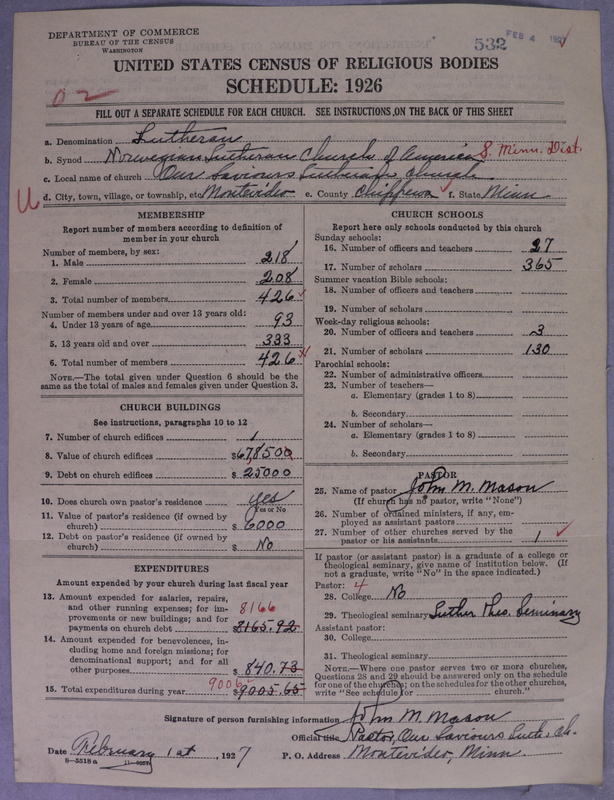 DEPARTMENT OF COMMERCE
BUREAU OF THE CENSUS
WASHINGTON
532 FEB 4 1927
UNITED STATES CENSUS OF RELIGIOUS BODIES
SCHEDULE: 1926
02
FILL OUT A SEPARATE SCHEDULE FOR EACH CHURCH. SEE INSTRUCTIONS ON THE BACK OF THIS SHEET
a. Denomination Lutheran
b. Synod Norwegian Lutheran Church of America S. Minn. Dist.
c. Local name of church Our Saviours Lutheran Church
U d. City, town, village, or township, etc. Montevideo e. County Chippewa f. State Minn
MEMBERSHIP
Report number of members according to definition of
member in your church
Number of members, by sex:
1. Male 218
2. Female 208
3. Total number of members 426
Number of members under and over 13 years old:
4. Under 13 years of age 93
5. 13 years old and over 333
6. Total number of members 426
NOTE.—The total given under Question 6 should be the
same as the total of males and females given under Question 3.
CHURCH BUILDINGS
See instructions, paragraphs 10 to 12
7. Number of church edifices 1
8. Value of church edifices $67,8500
9. Debt on church edifices $ 25000
10. Does church own pastor's residence yes
Yes or No
11. Value of pastor's residence (if owned by
church) $ 6000
12. Debt on pastor's residence (if owned by
church) $ No
EXPENDITURES
Amount expended by your church during last fiscal year
13. Amount expended for salaries, repairs,
and other running expenses; for im-
provements or new buildings; and for
payments on church debt 8166 $ 8165.92
14. Amount expended for benevolences, in-
cluding home and foreign missions; for
denominational support; and for all
other purposes $ 840.73
15. Total expenditures during year 9006 $ 9005.65
CHURCH SCHOOLS
Report here only schools conducted by this church
Sunday schools:
16. Number of officers and teachers 27
17. Number of scholars 365
Summer vacation Bible schools:
18. Number of officers and teachers
19. Number of scholars
Week-day religious schools:
20. Number of officers and teachers 3
21. Number of scholars 130
Parochial schools:
22. Number of administrative officers
23. Number of teachers—
a. Elementary (grades 1 to 8)
b. Secondary
24. Number of scholars—
a. Elementary (grades 1 to 8)
b. Secondary
PASTOR
25. Name of pastor John M. Mason
(If church has no pastor, write "None")
26. Number of ordained ministers, if any, em-
ployed as assistant pastors
27. Number of other churches served by the
pastor or his assistants 1
If pastor (or assistant pastor) is a graduate of a college or
theological seminary, give name of institution below. (If
not a graduate, write "No" in the space indicated.)
Pastor: 4
28. College No
29. Theological seminary Luther Theo. Seminary
Assistant pastor:
30. College
31. Theological seminary
NOTE.—Where one pastor serves two or more churches,
Questions 28 and 29 should be answered only on the schedule
for one of the churches; on the schedules for the other churches,
write "See schedule for church."
Signature of person furnishing information John M. Mason
Official title Pastor, Our Saviours Luth. Ch.
Date February 1st, 1927 P. O. Address Montevideo, Minn.
8—5518a